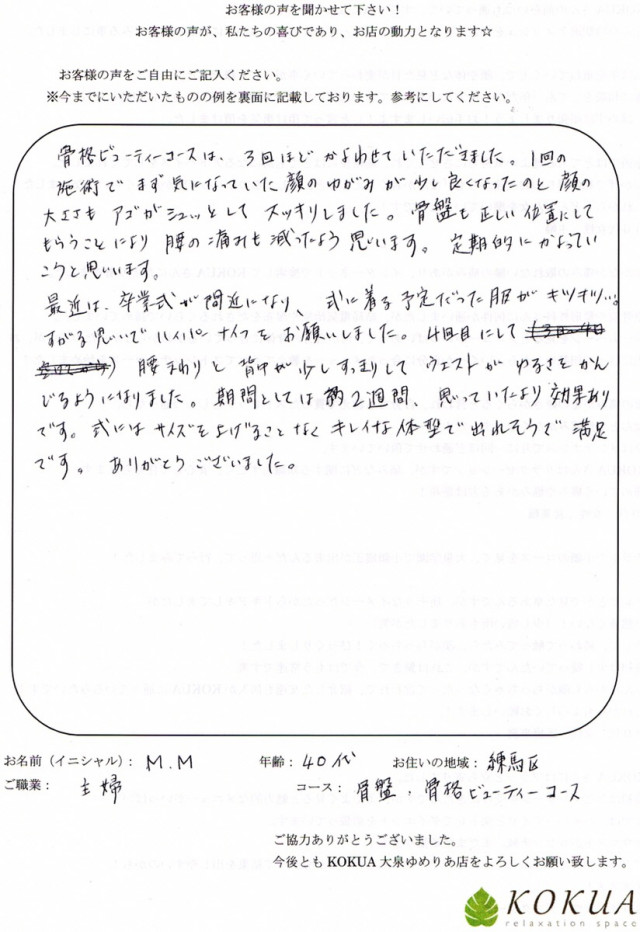 お客様の声を聞かせて下さい！
お客様の声が、私たちの喜びであり、お店の動力となります☆
お客様の声をご自由にご記入ください。
※今までにいただいたものの例を裏面に記載しております。参考にしてください。
骨格ビューティーコースは、3回ほどかよわせていただきました。1回の
施術でまず気になっていた顔のゆがみが少し良くなったのと顔の
大きさもアゴがシュッとしてスッキリしました。骨盤も正しい位置にして
もらうことにより腰の痛みも減ったよう思います。定期的にかよってい
こうと思います。
最近は、卒業式が間近になり、式に着る予定だった服がキツキツ…。
すがる思いでハイパーナイフをお願いしました。4回目にして
腰まわりと背中が少しすっきりしてウエストがゆるさをかん
じるようになりました。期間としては約2週間、思っていたより効果あり
です。式にはサイズを上げることなくキレイな体型で出れそうで満足
です。ありがとうございました。
お名前（イニシャル）： M.M 年齢： 40代 お住いの地域： 練馬区
ご職業： 主婦 コース： 骨盤，骨格ビューティーコース
ご協力ありがとうございました。
今後とも KOKUA 大泉ゆめりあ店をよろしくお願い致します。
KOKUA
relaxation space